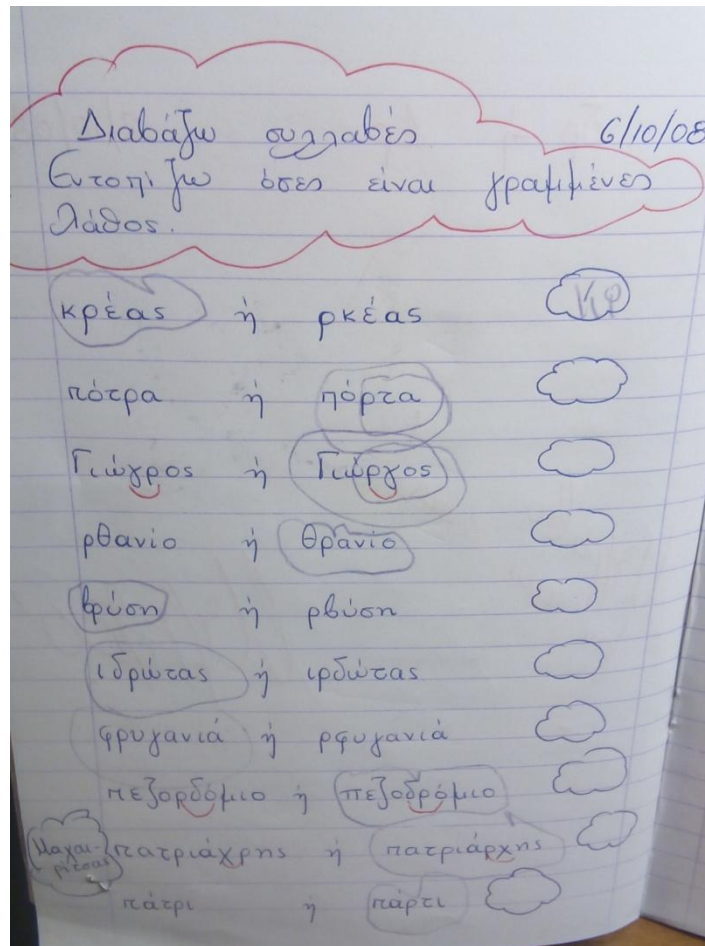 Διαβάζω συλλαβές 6/10/08
Εντοπίζω όσες είναι γραμμένες
λάθος.
κρέας ή ρκέας κρ
πότρα ή πόρτα
Γιώγρος ή Γιώργος
ρθανίο ή θρανίο
βρύση ή ρβύση
ιδρώτας ή ιρδώτας
φρυγανιά ή ρφυγανιά
πεζορδόμιο ή πεζοδρόμιο
Μαχαι-
ρίτσας
πατριάχρης ή πατριάρχης
πάτρι ή πάρτι